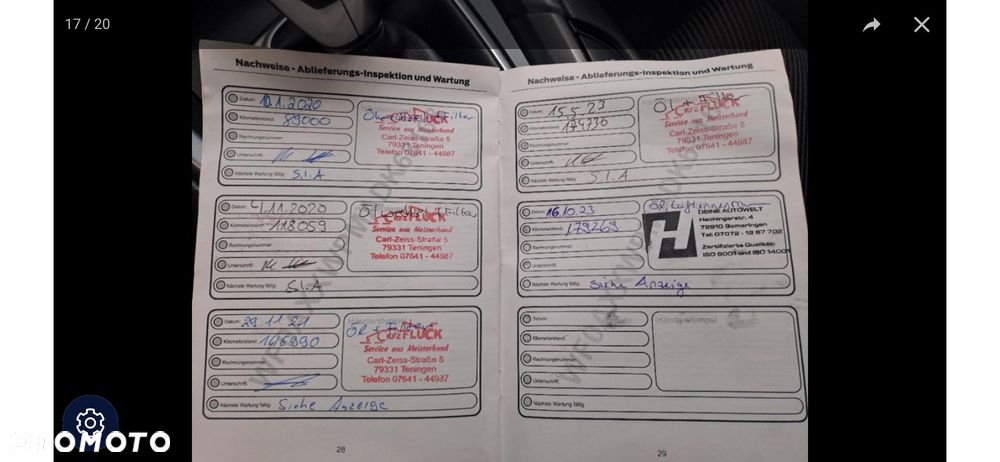 17 / 20
Nachweise - Ablieferungs-Inspektion und Wartung
Datum: 10.1.2020
Kilometerstand: 89000
Rechnungsnummer:
Unterschrift:
Nächste Wartung fällig: S.I.A
Filter
KFZ FLUCK
Service aus Meisterhand
Carl-Zeiss-Straße 5
79331 Teningen
Telefon 07641 - 44987
Datum: 4.11.2020
Kilometerstand: 118059
Rechnungsnummer:
Unterschrift:
Nächste Wartung fällig: S.I.A
Filter
KFZ FLUCK
Service aus Meisterhand
Carl-Zeiss-Straße 5
79331 Teningen
Telefon 07641 - 44987
Datum: 29.11.21
Kilometerstand: 146990
Rechnungsnummer:
Unterschrift:
Nächste Wartung fällig: Siehe Anzeige
Händlerstempel
Öl + Filter
KFZ FLUCK
Service aus Meisterhand
Carl-Zeiss-Straße 5
79331 Teningen
Telefon 07641 - 44987
28
Nachweise - Ablieferungs-Inspektion und Wartung
Datum: 15.5.23
Kilometerstand:
Rechnungsnummer:
Unterschrift:
Nächste Wartung fällig: S.I.A
Öl + Filter
KFZ FLUCK
Service aus Meisterhand
Carl-Zeiss-Straße 5
79331 Teningen
Telefon 07641 - 44987
Datum: 16.10.23
Kilometerstand: 179269
Rechnungsnummer:
Unterschrift:
Nächste Wartung fällig: Siehe Anzeige
Öl,
H
DEINE AUTOWELT
Hechingerstr. 4
72810 Gomaringen
Tel: 07072 - 12 87 702
Zertifizierte Qualität:
ISO 9001 und ISO 14001
Datum:
Kilometerstand:
Rechnungsnummer:
Unterschrift:
Nächste Wartung fällig:
Händlerstempel
29
OTOMOTO